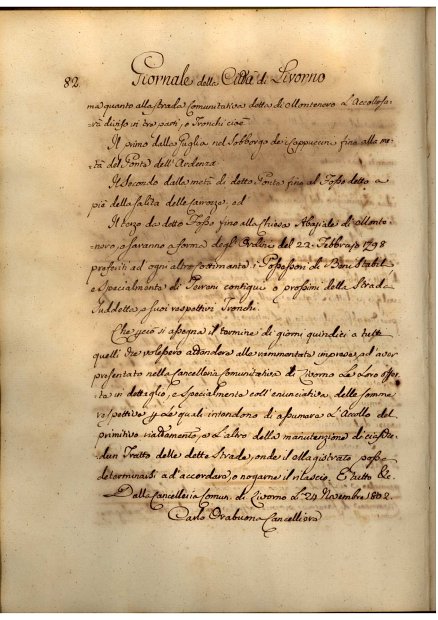 82 Giornale della Città di Livorno
ma quanto alla strada Comunitativa detta di Montenero l'Accollo sa-
rà diviso in tre parti, o Tronchi cioè
Il primo dalla Puglia nel Sobborgo de' Cappuccini fino alla me-
tà del Ponte dell'Ardenza
Il Secondo dalla metà di detto Ponte fino al Fosso detto a
piè della salita delle carrozze, ed
Il terzo da detto Fosso fino alla Chiesa Abaziale di Monte
nero, e saranno a forma degl'Ordini del 22 Febbraio 1798
preferiti ad ogni altro i Possessori di Beni Stabili
e Specialmente di Terreni contigui o prossimi della Strada
Suddetta, a' suoi respettivi Tronchi.
Che perciò si assegna il termine di giorni quindici a tutti
quelli che volessero attendere alla rammentata impresa ad aver
presentato nella Cancelleria Comunitativa di Livorno Le Loro offer-
te in dettaglio, e specialmente coll'enunciativa delle somme
respettive per le quali intendono di assumere L'Accollo del
primitivo riattamento, e L'altro della manutenzione di ciasche-
dun Tratto delle dette Strade, onde il Magistrato possa
determinarsi ad accordare, o negarne il rilascio. E tutto &c.
Dalla Cancelleria Comun. di Livorno Li 24 Novembre 1802.
Carlo Cancelliere